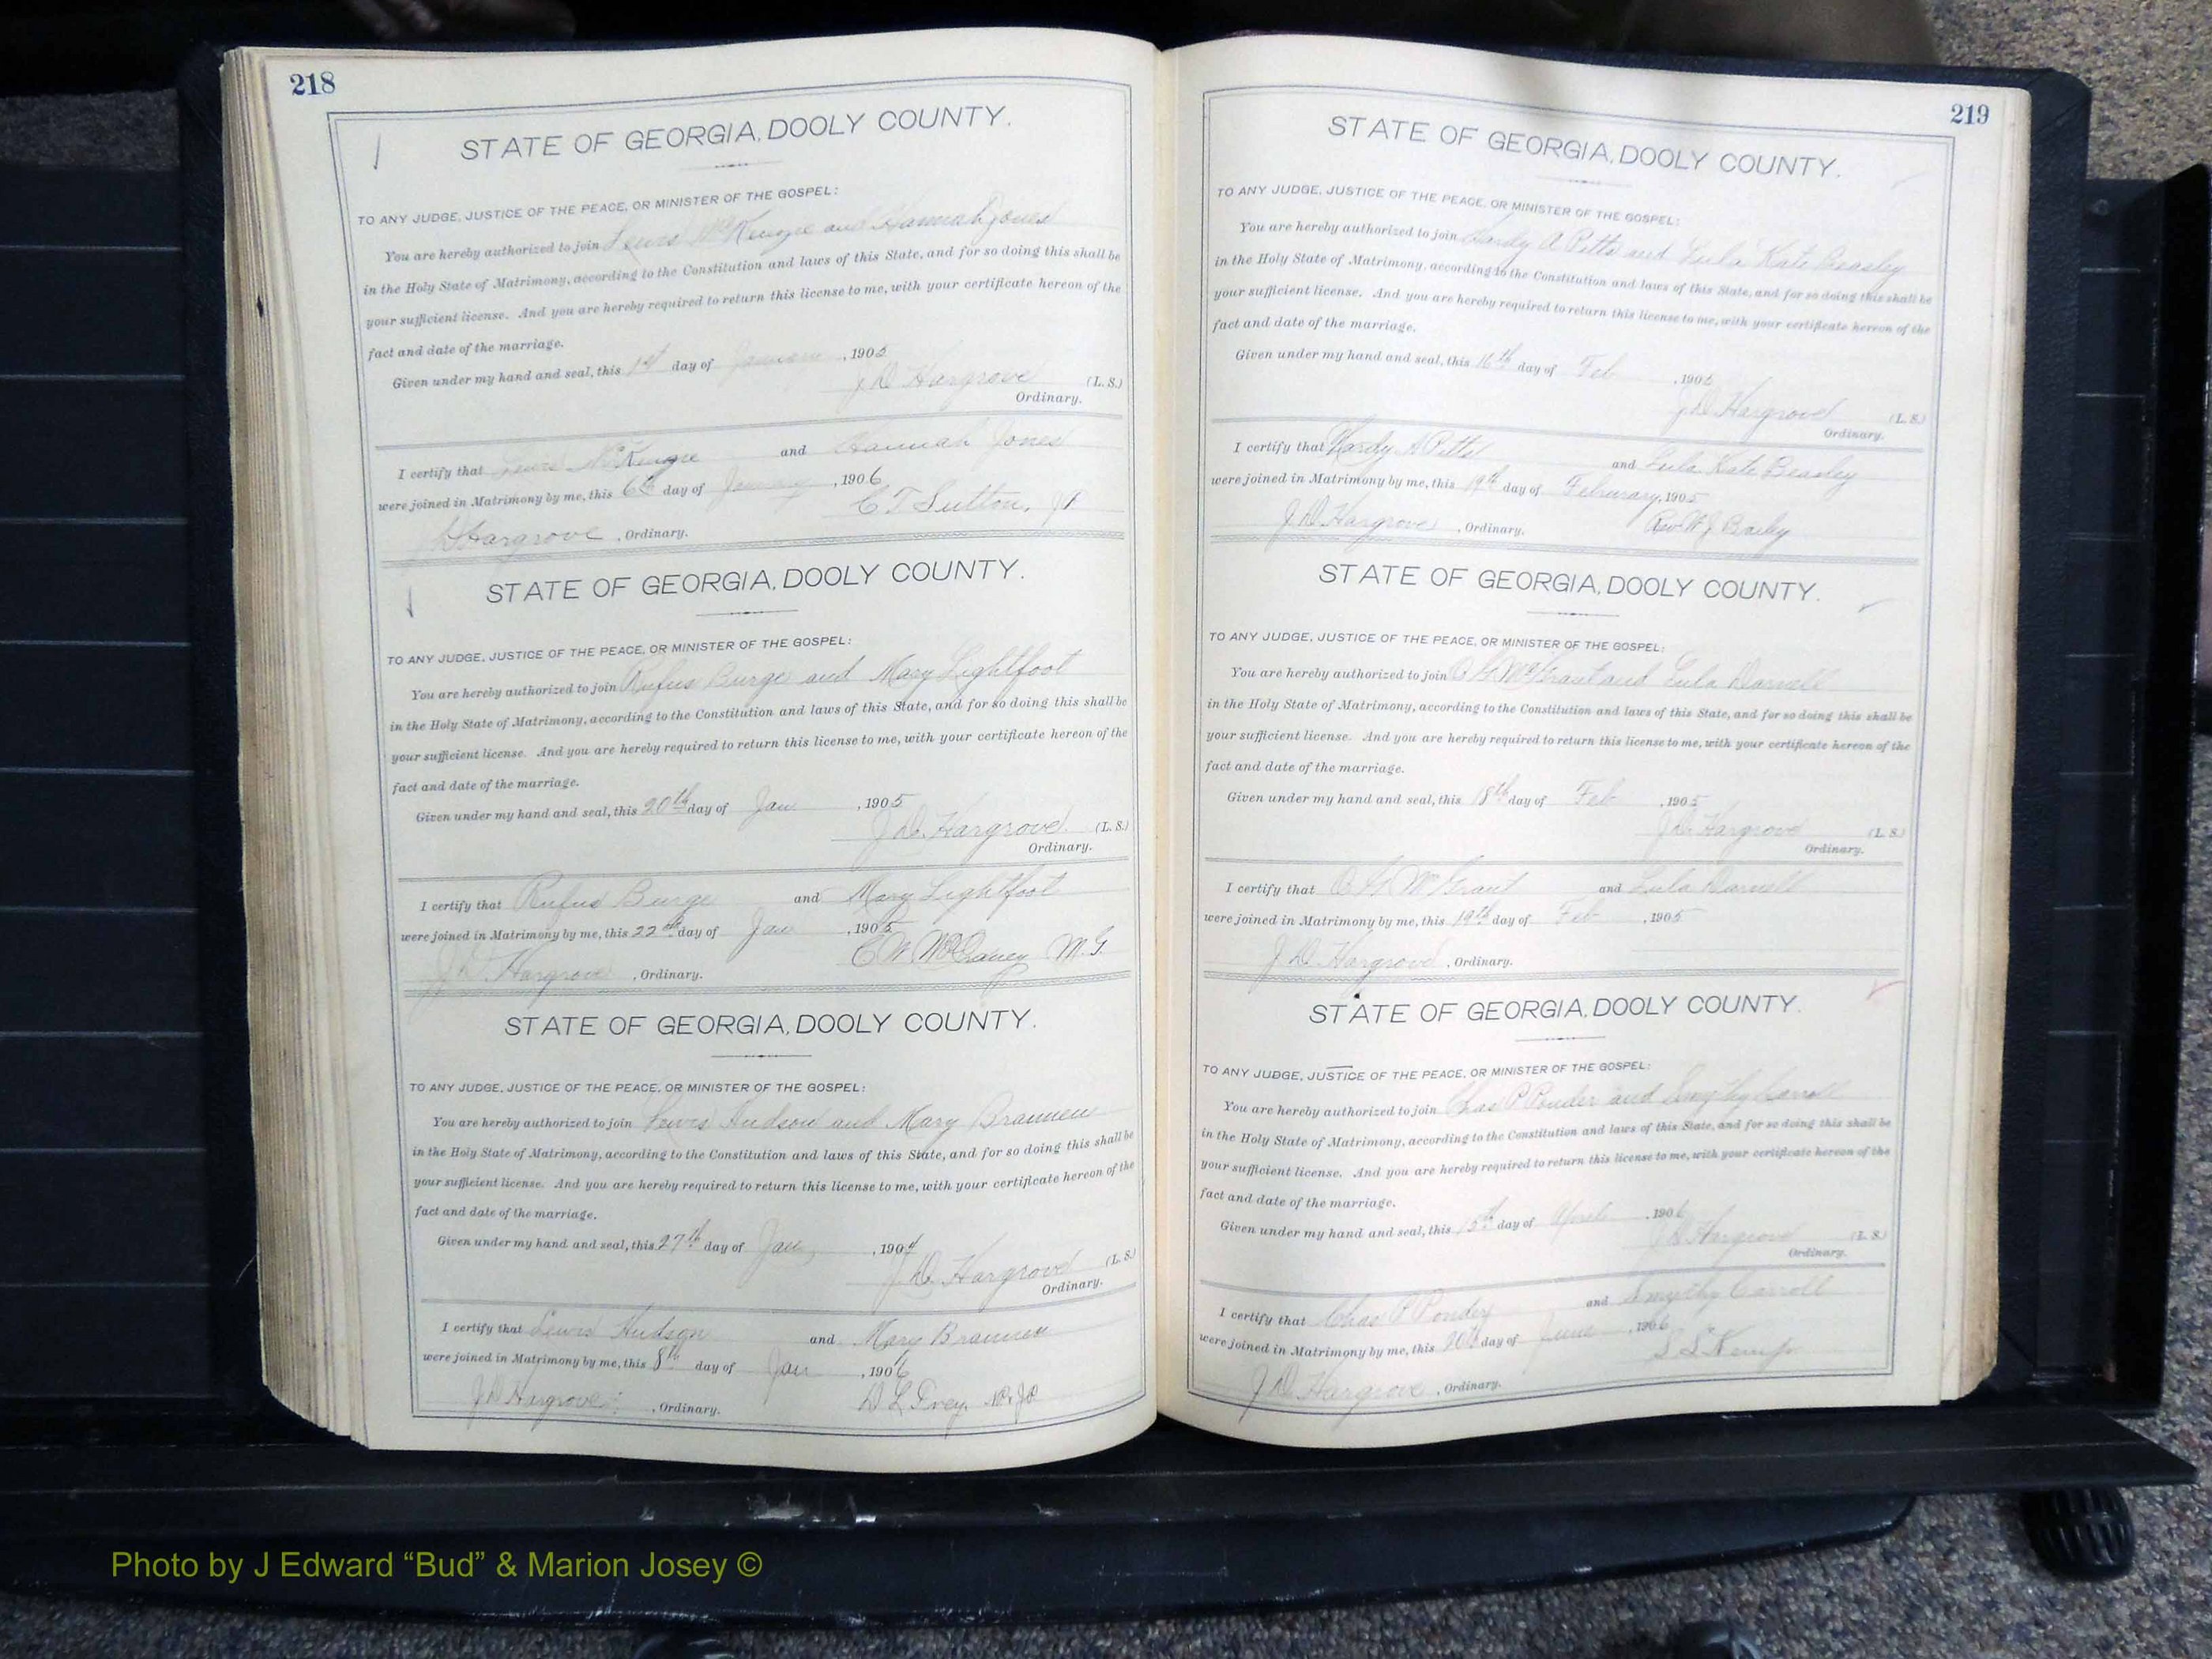 218
STATE OF GEORGIA, DOOLY COUNTY.
TO ANY JUDGE, JUSTICE OF THE PEACE, OR MINISTER OF THE GOSPEL:
You are hereby authorized to join Lewis McKenzie and Hannah Jones
in the Holy State of Matrimony, according to the Constitution and laws of this State, and for so doing this shall be
your sufficient license. And you are hereby required to return this license to me, with your certificate hereon of the
fact and date of the marriage.
Given under my hand and seal, this 1st day of January, 1905
J D Hargrove (L. S.)
Ordinary.
I certify that Lewis McKenzie and Hannah Jones
were joined in Matrimony by me, this 6th day of January, 1906
C T Sutton, JP
J D Hargrove, Ordinary.
STATE OF GEORGIA, DOOLY COUNTY.
TO ANY JUDGE, JUSTICE OF THE PEACE, OR MINISTER OF THE GOSPEL:
You are hereby authorized to join Rufus Burge and Mary Lightfoot
in the Holy State of Matrimony, according to the Constitution and laws of this State, and for so doing this shall be
your sufficient license. And you are hereby required to return this license to me, with your certificate hereon of the
fact and date of the marriage.
Given under my hand and seal, this 20th day of Jan, 1905
J D. Hargrove (L. S.)
Ordinary.
I certify that Rufus Burge and Mary Lightfoot
were joined in Matrimony by me, this 22nd day of Jan, 1905
C W M. G.
J D. Hargrove, Ordinary.
STATE OF GEORGIA, DOOLY COUNTY.
TO ANY JUDGE, JUSTICE OF THE PEACE, OR MINISTER OF THE GOSPEL:
You are hereby authorized to join Lewis Hudson and Mary Brannen
in the Holy State of Matrimony, according to the Constitution and laws of this State, and for so doing this shall be
your sufficient license. And you are hereby required to return this license to me, with your certificate hereon of the
fact and date of the marriage.
Given under my hand and seal, this 27th day of Jan, 190
J D. Hargrove (L. S.)
Ordinary.
I certify that Lewis Hudson and Mary Brannen
were joined in Matrimony by me, this 8th day of Jan, 1906
D L
J D Hargrove, Ordinary.
219
STATE OF GEORGIA, DOOLY COUNTY.
TO ANY JUDGE, JUSTICE OF THE PEACE, OR MINISTER OF THE GOSPEL:
You are hereby authorized to join Hardy A Pitts and Lula Kate Beasley
in the Holy State of Matrimony, according to the Constitution and laws of this State, and for so doing this shall be
your sufficient license. And you are hereby required to return this license to me, with your certificate hereon of the
fact and date of the marriage.
Given under my hand and seal, this 16th day of Feb, 1905
J D. Hargrove (L. S.)
Ordinary.
I certify that Hardy A Pitts and Lula Kate Beasley
were joined in Matrimony by me, this 19th day of Feburary, 1905
Rev W J Baily
J D. Hargrove, Ordinary.
STATE OF GEORGIA, DOOLY COUNTY.
TO ANY JUDGE, JUSTICE OF THE PEACE, OR MINISTER OF THE GOSPEL:
You are hereby authorized to join and Lula Darnell
in the Holy State of Matrimony, according to the Constitution and laws of this State, and for so doing this shall be
your sufficient license. And you are hereby required to return this license to me, with your certificate hereon of the
fact and date of the marriage.
Given under my hand and seal, this 18th day of Feb, 1905
J D. Hargrove (L. S.)
Ordinary.
I certify that and Lula Darnell
were joined in Matrimony by me, this 19th day of Feb, 1905
J D. Hargrove, Ordinary.
STATE OF GEORGIA, DOOLY COUNTY.
TO ANY JUDGE, JUSTICE OF THE PEACE, OR MINISTER OF THE GOSPEL:
You are hereby authorized to join Chas P Ponder and Smythy Carroll
in the Holy State of Matrimony, according to the Constitution and laws of this State, and for so doing this shall be
your sufficient license. And you are hereby required to return this license to me, with your certificate hereon of the
fact and date of the marriage.
Given under my hand and seal, this 15th day of April, 1906
J D Hargrove (L. S.)
Ordinary.
I certify that Chas P Ponder and Smythy Carroll
were joined in Matrimony by me, this 20th day of June, 1906
S S Kemp
J D Hargrove, Ordinary.
Photo by J Edward “Bud” & Marion Josey ©